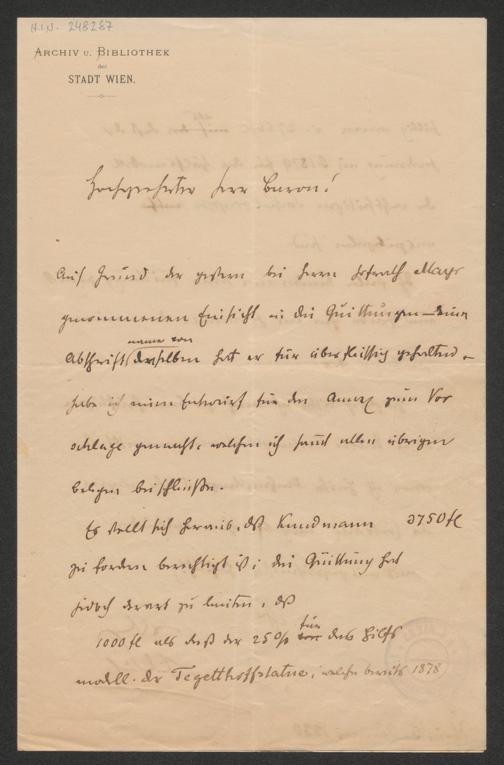 H.I.N. 248287
ARCHIV U. BIBLIOTHEK
der
STADT WIEN.
Hochgeehrter Herr Baron!
Auf Grund der gestern bei Herrn Hofrath Mayr
genommenen Einsicht in die Quittungen – eine
Abschriftsname von derselben hat er für überflüssig gehalten –
habe ich einen Entwurf für den Annex zum Vor
schlage gemacht, welchen ich sammt allen übrigen
belegen beischließe.
Es stellt sich heraus, daß Kundmann 3750 fl
zu fordern berechtigt ist; die Quittung hat
jedoch derart zu lauten, daß
1000 fl als der 25% für das Hilfs
modell der Tegetthoffstatue, welche bereits 1878